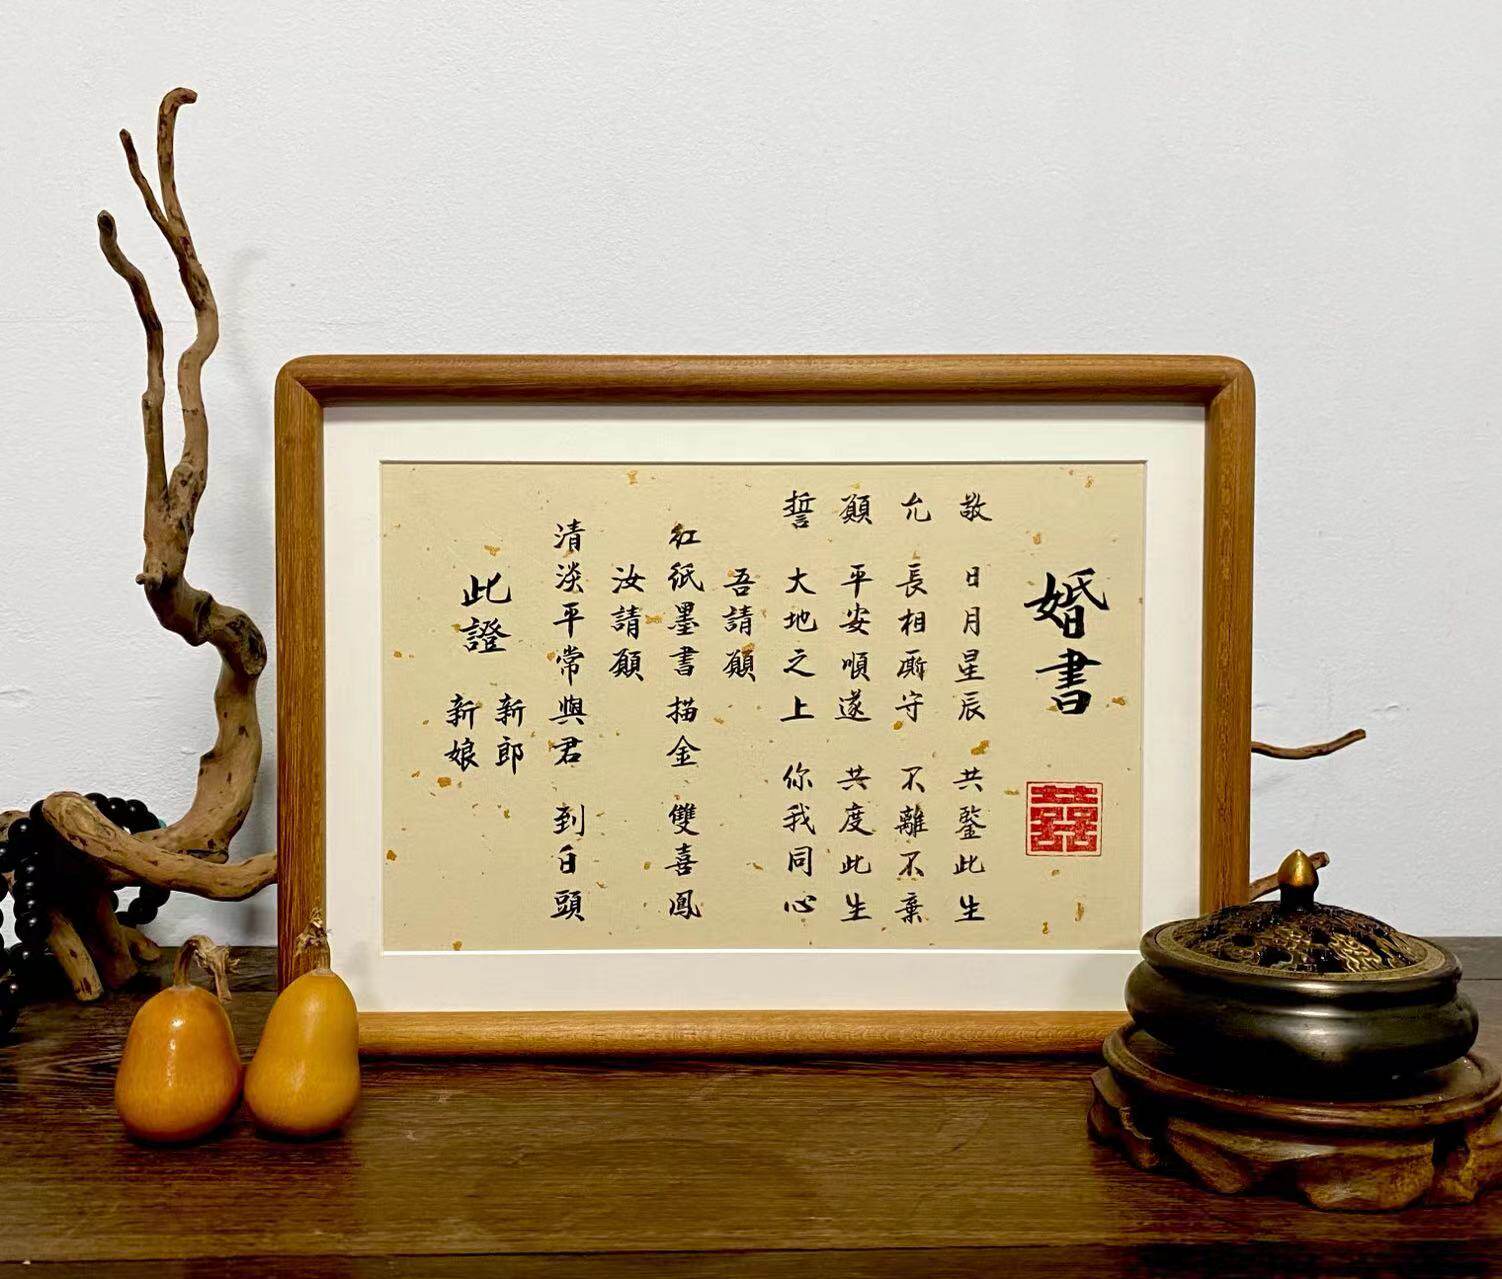 婚書
囍
敬 日月星辰 共鑒此生
允 長相廝守 不離不棄
願 平安順遂 共度此生
誓 大地之上 你我同心
吾請願
紅紙墨書描金 雙喜鳳
汝請願
清淡平常與君 到白頭
此證
新郎
新娘